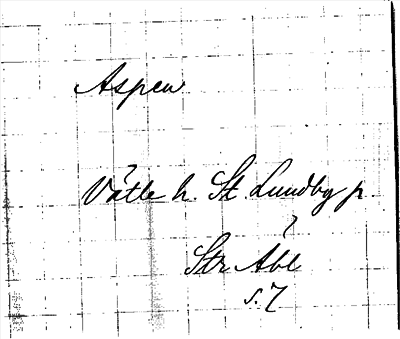 Aspen
Vätle h. St. Lundby p.
Str Abl
s. 7